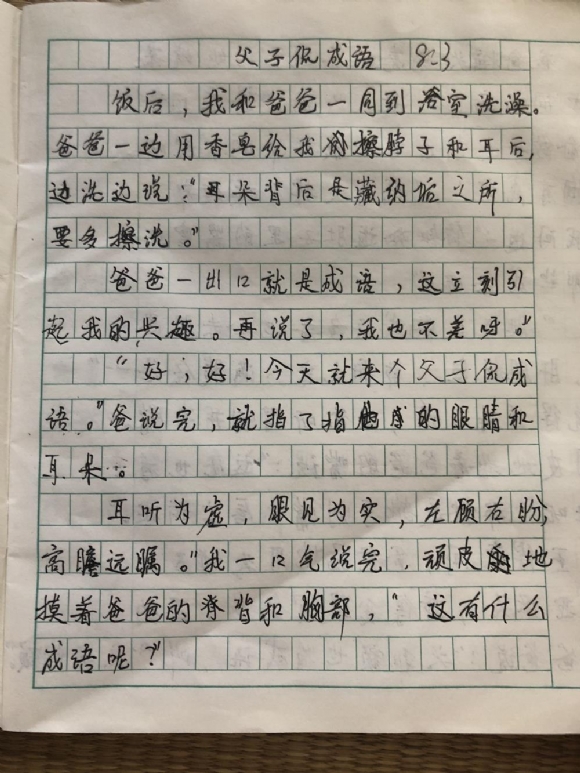 父子侃成语 823
饭后，我和爸爸一同到浴室洗澡。
爸爸一边用香皂给我擦脖子和耳后，
边洗边说：“耳朵背后是藏纳垢之所，
要多擦洗。”
爸爸一出口就是成语，这立刻引
起我的兴趣。再说了，我也不差呀。”
“好，好！今天就来个父子侃成
语。”爸说完，就指了指他的眼睛和
耳朵：。
耳听为虚，眼见为实，左顾右盼，
高瞻远瞩。”我一口气说完，顽皮地
摸着爸爸的脊背和胸部，“这有什么
成语呢？”